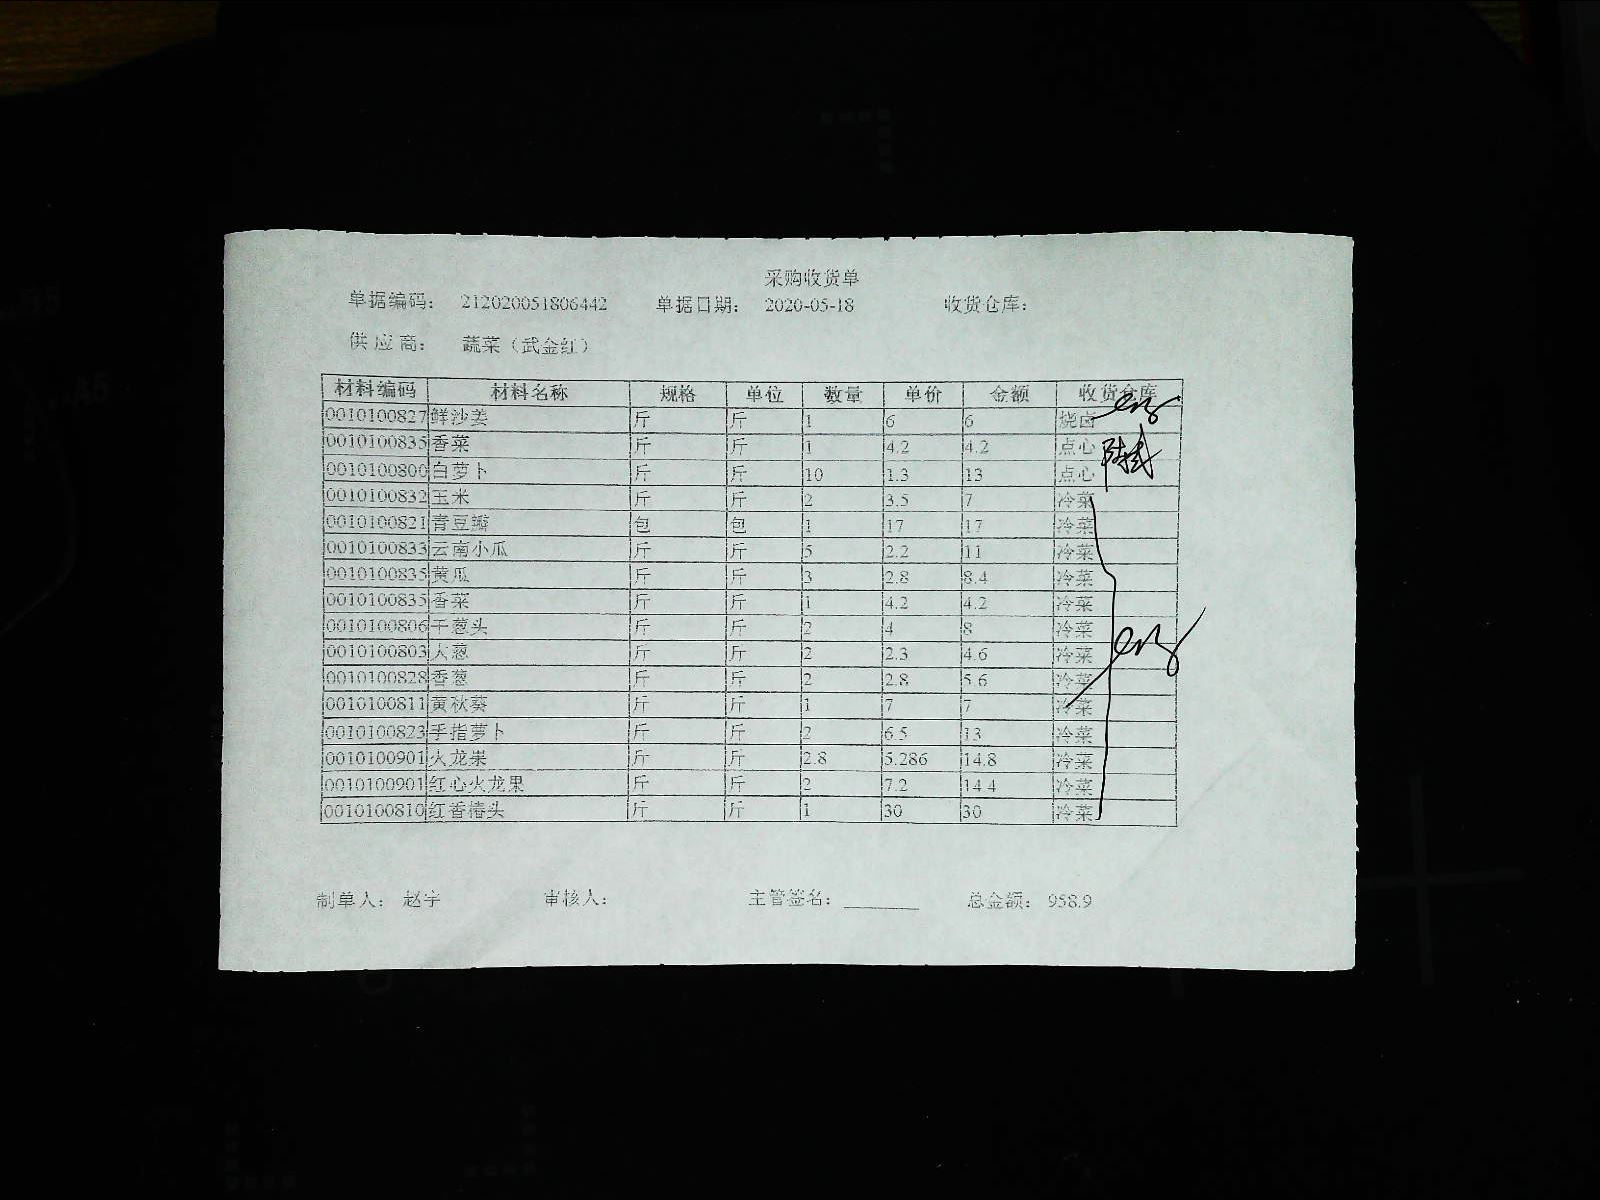 采购收货单
单据编码： 212020051806442 单据日期： 2020-05-18 收货仓库：
供应商： 蔬菜（武金红）
材料编码 材料名称 规格 单位 数量 单价 金额 收货仓库
0010100827 鲜沙姜 斤 斤 1 6 6 烧卤
0010100835 香菜 斤 斤 1 4.2 4.2 点心
0010100800 白萝卜 斤 斤 10 1.3 13 点心
0010100832 玉米 斤 斤 2 3.5 7 冷菜
0010100821 青豆瓣 包 包 1 17 17 冷菜
0010100833 云南小瓜 斤 斤 5 2.2 11 冷菜
0010100835 黄瓜 斤 斤 3 2.8 8.4 冷菜
0010100835 香菜 斤 斤 1 4.2 4.2 冷菜
0010100806 干葱头 斤 斤 2 4 8 冷菜
0010100803 大葱 斤 斤 2 2.3 4.6 冷菜
0010100828 香葱 斤 斤 2 2.8 5.6 冷菜
0010100811 黄秋葵 斤 斤 1 7 7 冷菜
0010100823 手指萝卜 斤 斤 2 6.5 13 冷菜
0010100901 火龙果 斤 斤 2.8 5.286 14.8 冷菜
0010100901 红心火龙果 斤 斤 2 7.2 14.4 冷菜
0010100810 红香椿头 斤 斤 1 30 30 冷菜
制单人： 赵宇 审核人： 主管签名： 总金额： 958.9